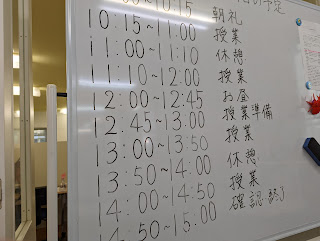 の予定
00~10:15 朝礼
10:15~11:00 授業
11:00~11:10 休憩
11:10~12:00 授業
12:00~12:45 お昼
12:45~13:00 授業準備
13:00~13:50 授業
13:50~14:00 休憩
14:00~14:50 授業
14:50~15:00 確認・終了